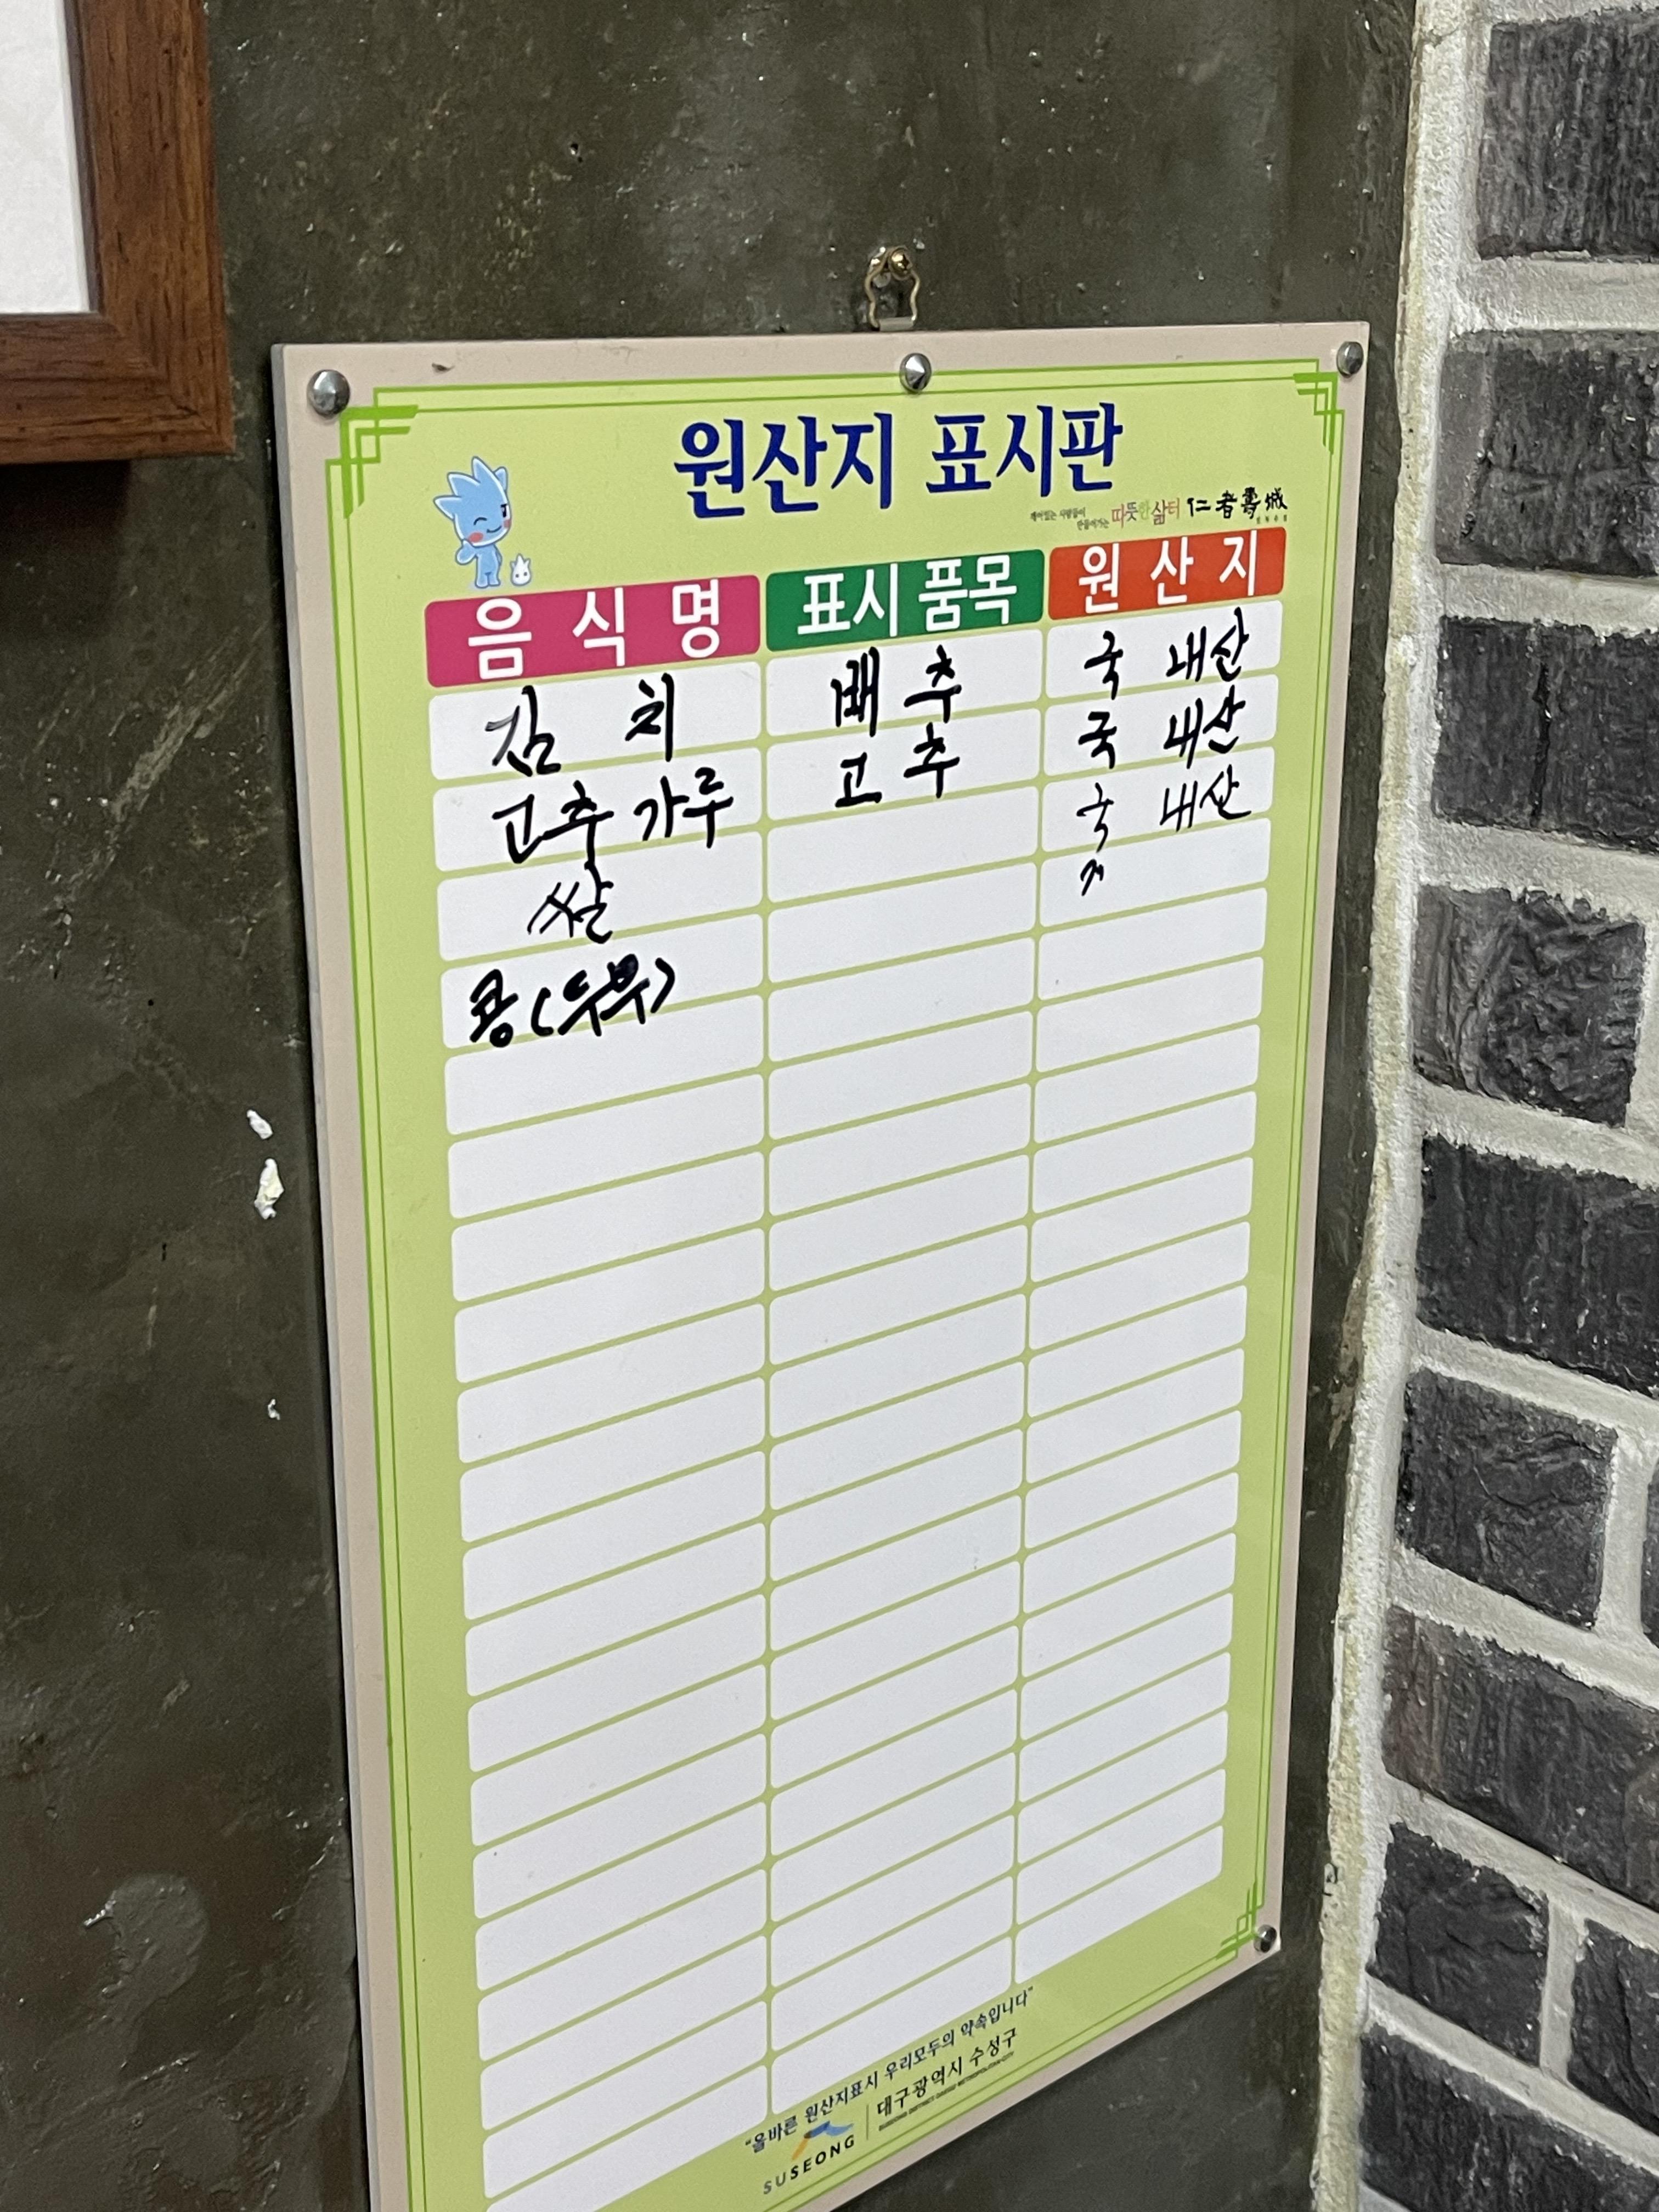 원산지 표시판
깨어있는 사람들이
만들어가는 따뜻한 삶터 仁者壽城
음식명 표시품목 원산지
김치 배추 국내산
고추가루 고추 국내산
쌀 국내산
콩(두부) 〃
"올바른 원산지표시 우리모두의 약속입니다"
SUSEONG 대구광역시 수성구